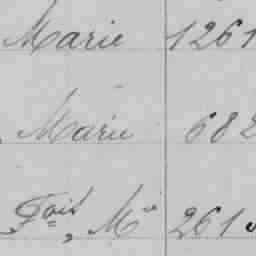 Marie 1261
Marie 682
Fois, Mie 261